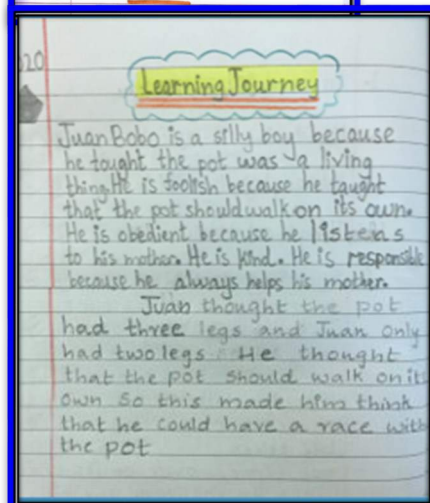 20
Learning Journey
Juan Bobo is a silly boy because
he taught the pot was a living
thing. He is foolish because he taught
that the pot should walk on its own.
He is obedient because he listens
to his mother. He is kind. He is responsible
because he always helps his mother.
Juan thought the pot
had three legs and Juan only
had two legs. He thought
that the pot should walk on its
own So this made him think
that he could have a race with
the pot